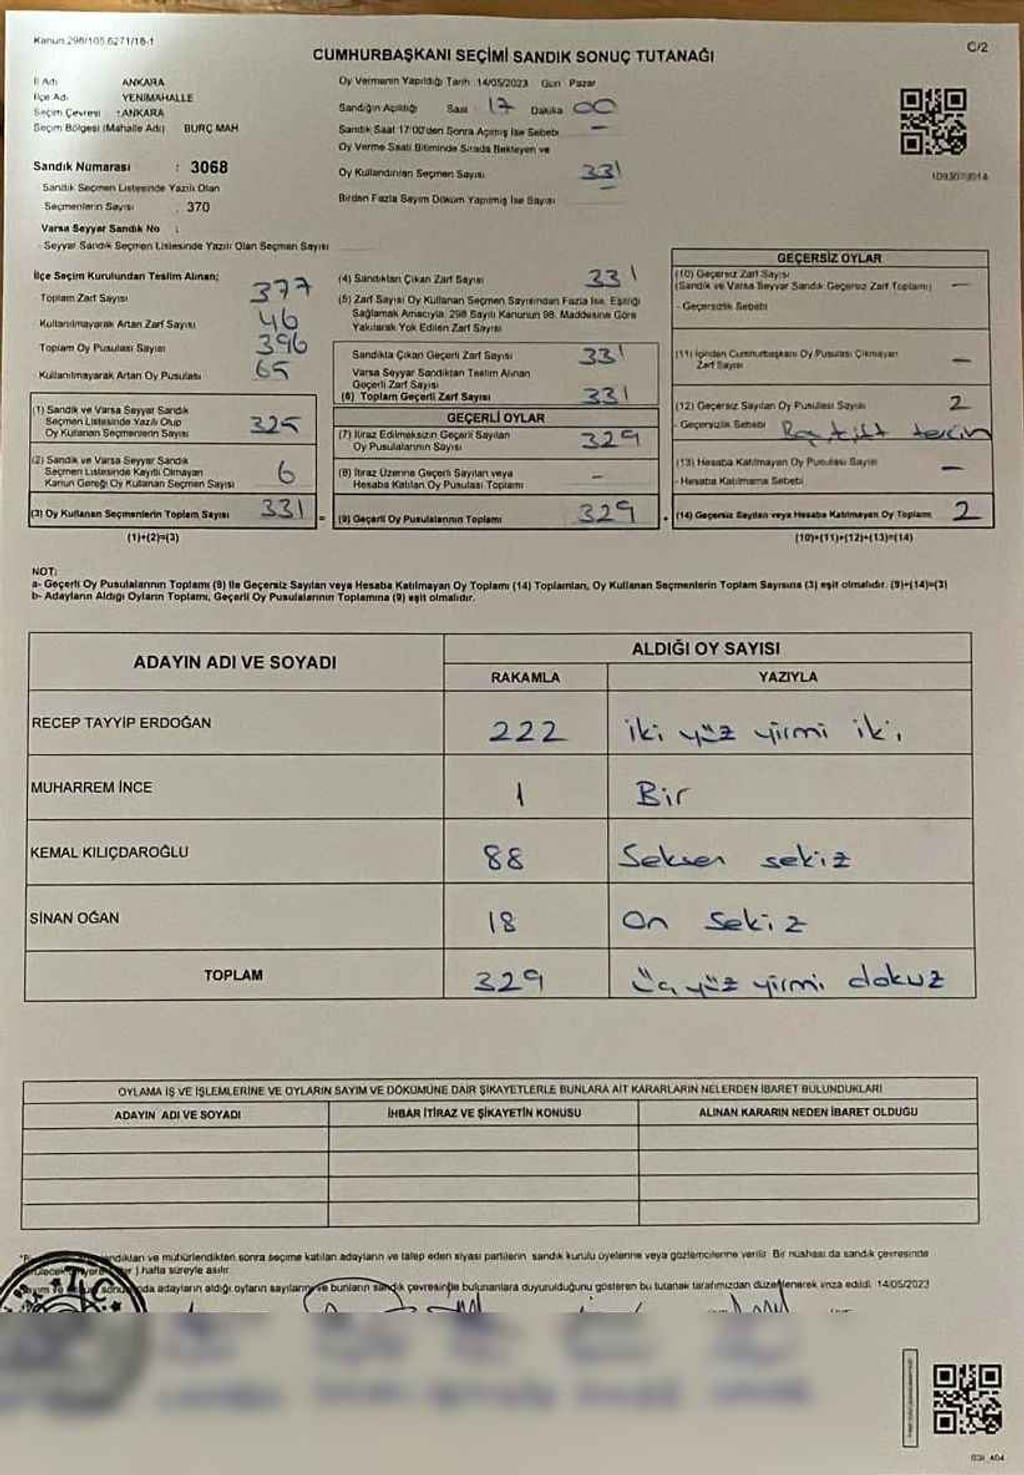 Kanun 298/105.6271/18-1
C/2
CUMHURBAŞKANI SEÇİMİ SANDIK SONUÇ TUTANAĞI
İl Adı ANKARA
İlçe Adı YENİMAHALLE
Seçim Çevresi : ANKARA
Seçim Bölgesi (Mahalle Adı) BURÇ MAH
Sandık Numarası : 3068
Sandık Seçmen Listesinde Yazılı Olan
Seçmenlerin Sayısı : 370
Varsa Seyyar Sandık No :
Seyyar Sandık Seçmen Listesinde Yazılı Olan Seçmen Sayısı
Oy Vermenin Yapıldığı Tarih 14/05/2023 Gün Pazar
Sandığın Açıldığı Saat 17 Dakika 00
Sandık Saat 17:00'den Sonra Açılmış İse Sebebi —
Oy Verme Saati Bitiminde Sırada Bekleyen ve
Oy Kullandırılan Seçmen Sayısı 331
Birden Fazla Sayım Döküm Yapılmış İse Sayısı
İlçe Seçim Kurulundan Teslim Alınan;
Toplam Zarf Sayısı 377
Kullanılmayarak Artan Zarf Sayısı 46
Toplam Oy Pusulası Sayısı 396
Kullanılmayarak Artan Oy Pusulası 65
(1) Sandık ve Varsa Seyyar Sandık
Seçmen Listesinde Yazılı Olup
Oy Kullanan Seçmenlerin Sayısı 325
(2) Sandık ve Varsa Seyyar Sandık
Seçmen Listesinde Kayıtlı Olmayan
Kanun Gereği Oy Kullanan Seçmen Sayısı 6
(3) Oy Kullanan Seçmenlerin Toplam Sayısı 331
(1)+(2)=(3)
(4) Sandıktan Çıkan Zarf Sayısı 331
(5) Zarf Sayısı Oy Kullanan Seçmen Sayısından Fazla İse, Eşitliği
Sağlamak Amacıyla, 298 Sayılı Kanunun 98. Maddesine Göre
Yakılarak Yok Edilen Zarf Sayısı
Sandıkta Çıkan Geçerli Zarf Sayısı 331
Varsa Seyyar Sandıktan Teslim Alınan
Geçerli Zarf Sayısı
(6) Toplam Geçerli Zarf Sayısı 331
GEÇERLİ OYLAR
(7) İtiraz Edilmeksizin Geçerli Sayılan
Oy Pusulalarının Sayısı 329
(8) İtiraz Üzerine Geçerli Sayılan veya
Hesaba Katılan Oy Pusulası Toplamı —
= (9) Geçerli Oy Pusulalarının Toplamı 329
GEÇERSİZ OYLAR
(10) Geçersiz Zarf Sayısı —
(Sandık ve Varsa Seyyar Sandık Geçersiz Zarf Toplamı)
- Geçersizlik Sebebi
(11) İçinden Cumhurbaşkanı Oy Pusulası Çıkmayan
Zarf Sayısı —
(12) Geçersiz Sayılan Oy Pusulası Sayısı 2
- Geçersizlik Sebebi tercih
(13) Hesaba Katılmayan Oy Pusulası Sayısı —
- Hesaba Katılmama Sebebi
+ (14) Geçersiz Sayılan veya Hesaba Katılmayan Oy Toplamı 2
(10)+(11)+(12)+(13)=(14)
NOT:
a- Geçerli Oy Pusulalarının Toplamı (9) İle Geçersiz Sayılan veya Hesaba Katılmayan Oy Toplamı (14) Toplamları, Oy Kullanan Seçmenlerin Toplam Sayısına (3) eşit olmalıdır. (9)+(14)=(3)
b- Adayların Aldığı Oyların Toplamı, Geçerli Oy Pusulalarının Toplamına (9) eşit olmalıdır.
ADAYIN ADI VE SOYADI
ALDIĞI OY SAYISI
RAKAMLA YAZIYLA
RECEP TAYYİP ERDOĞAN 222 iki yüz yirmi iki
MUHARREM İNCE 1 Bir
KEMAL KILIÇDAROĞLU 88 Seksen sekiz
SİNAN OĞAN 18 On Sekiz
TOPLAM 329 üç yüz yirmi dokuz
OYLAMA İŞ VE İŞLEMLERİNE VE OYLARIN SAYIM VE DÖKÜMÜNE DAİR ŞİKAYETLERLE BUNLARA AİT KARARLARIN NELERDEN İBARET BULUNDUKLARI
ADAYIN ADI VE SOYADI İHBAR İTİRAZ VE ŞİKAYETİN KONUSU ALINAN KARARIN NEDEN İBARET OLDUĞU
ve mühürlendikten sonra seçime katılan adayların ve talep eden siyasi partilerin sandık kurulu üyelerine veya gözlemcilerine verilir. Bir nüshası da sandık çevresinde
) hafta süreyle asılır.
adayların aldığı oyların sayılarını ve bunların sandık çevresinde bulunanlara duyurulduğunu gösteren bu tutanak tarafımızdan düzenlenerek imza edildi. 14/05/2023